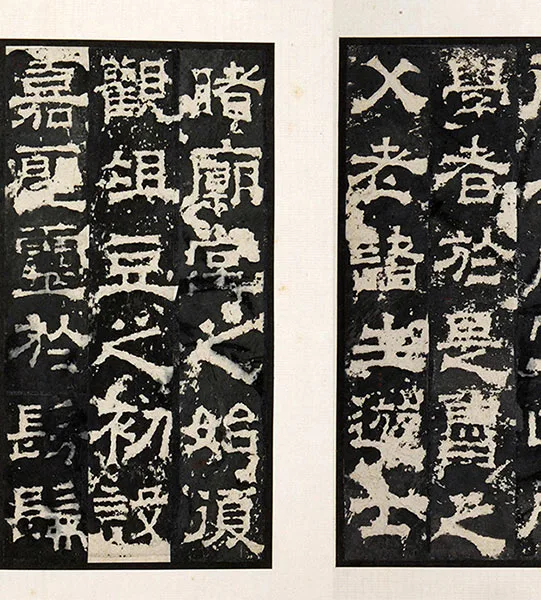 學者於是魯之
父老諸生遊士
睹廟堂之始復
觀俎豆之初設
嘉聖靈於髣髴